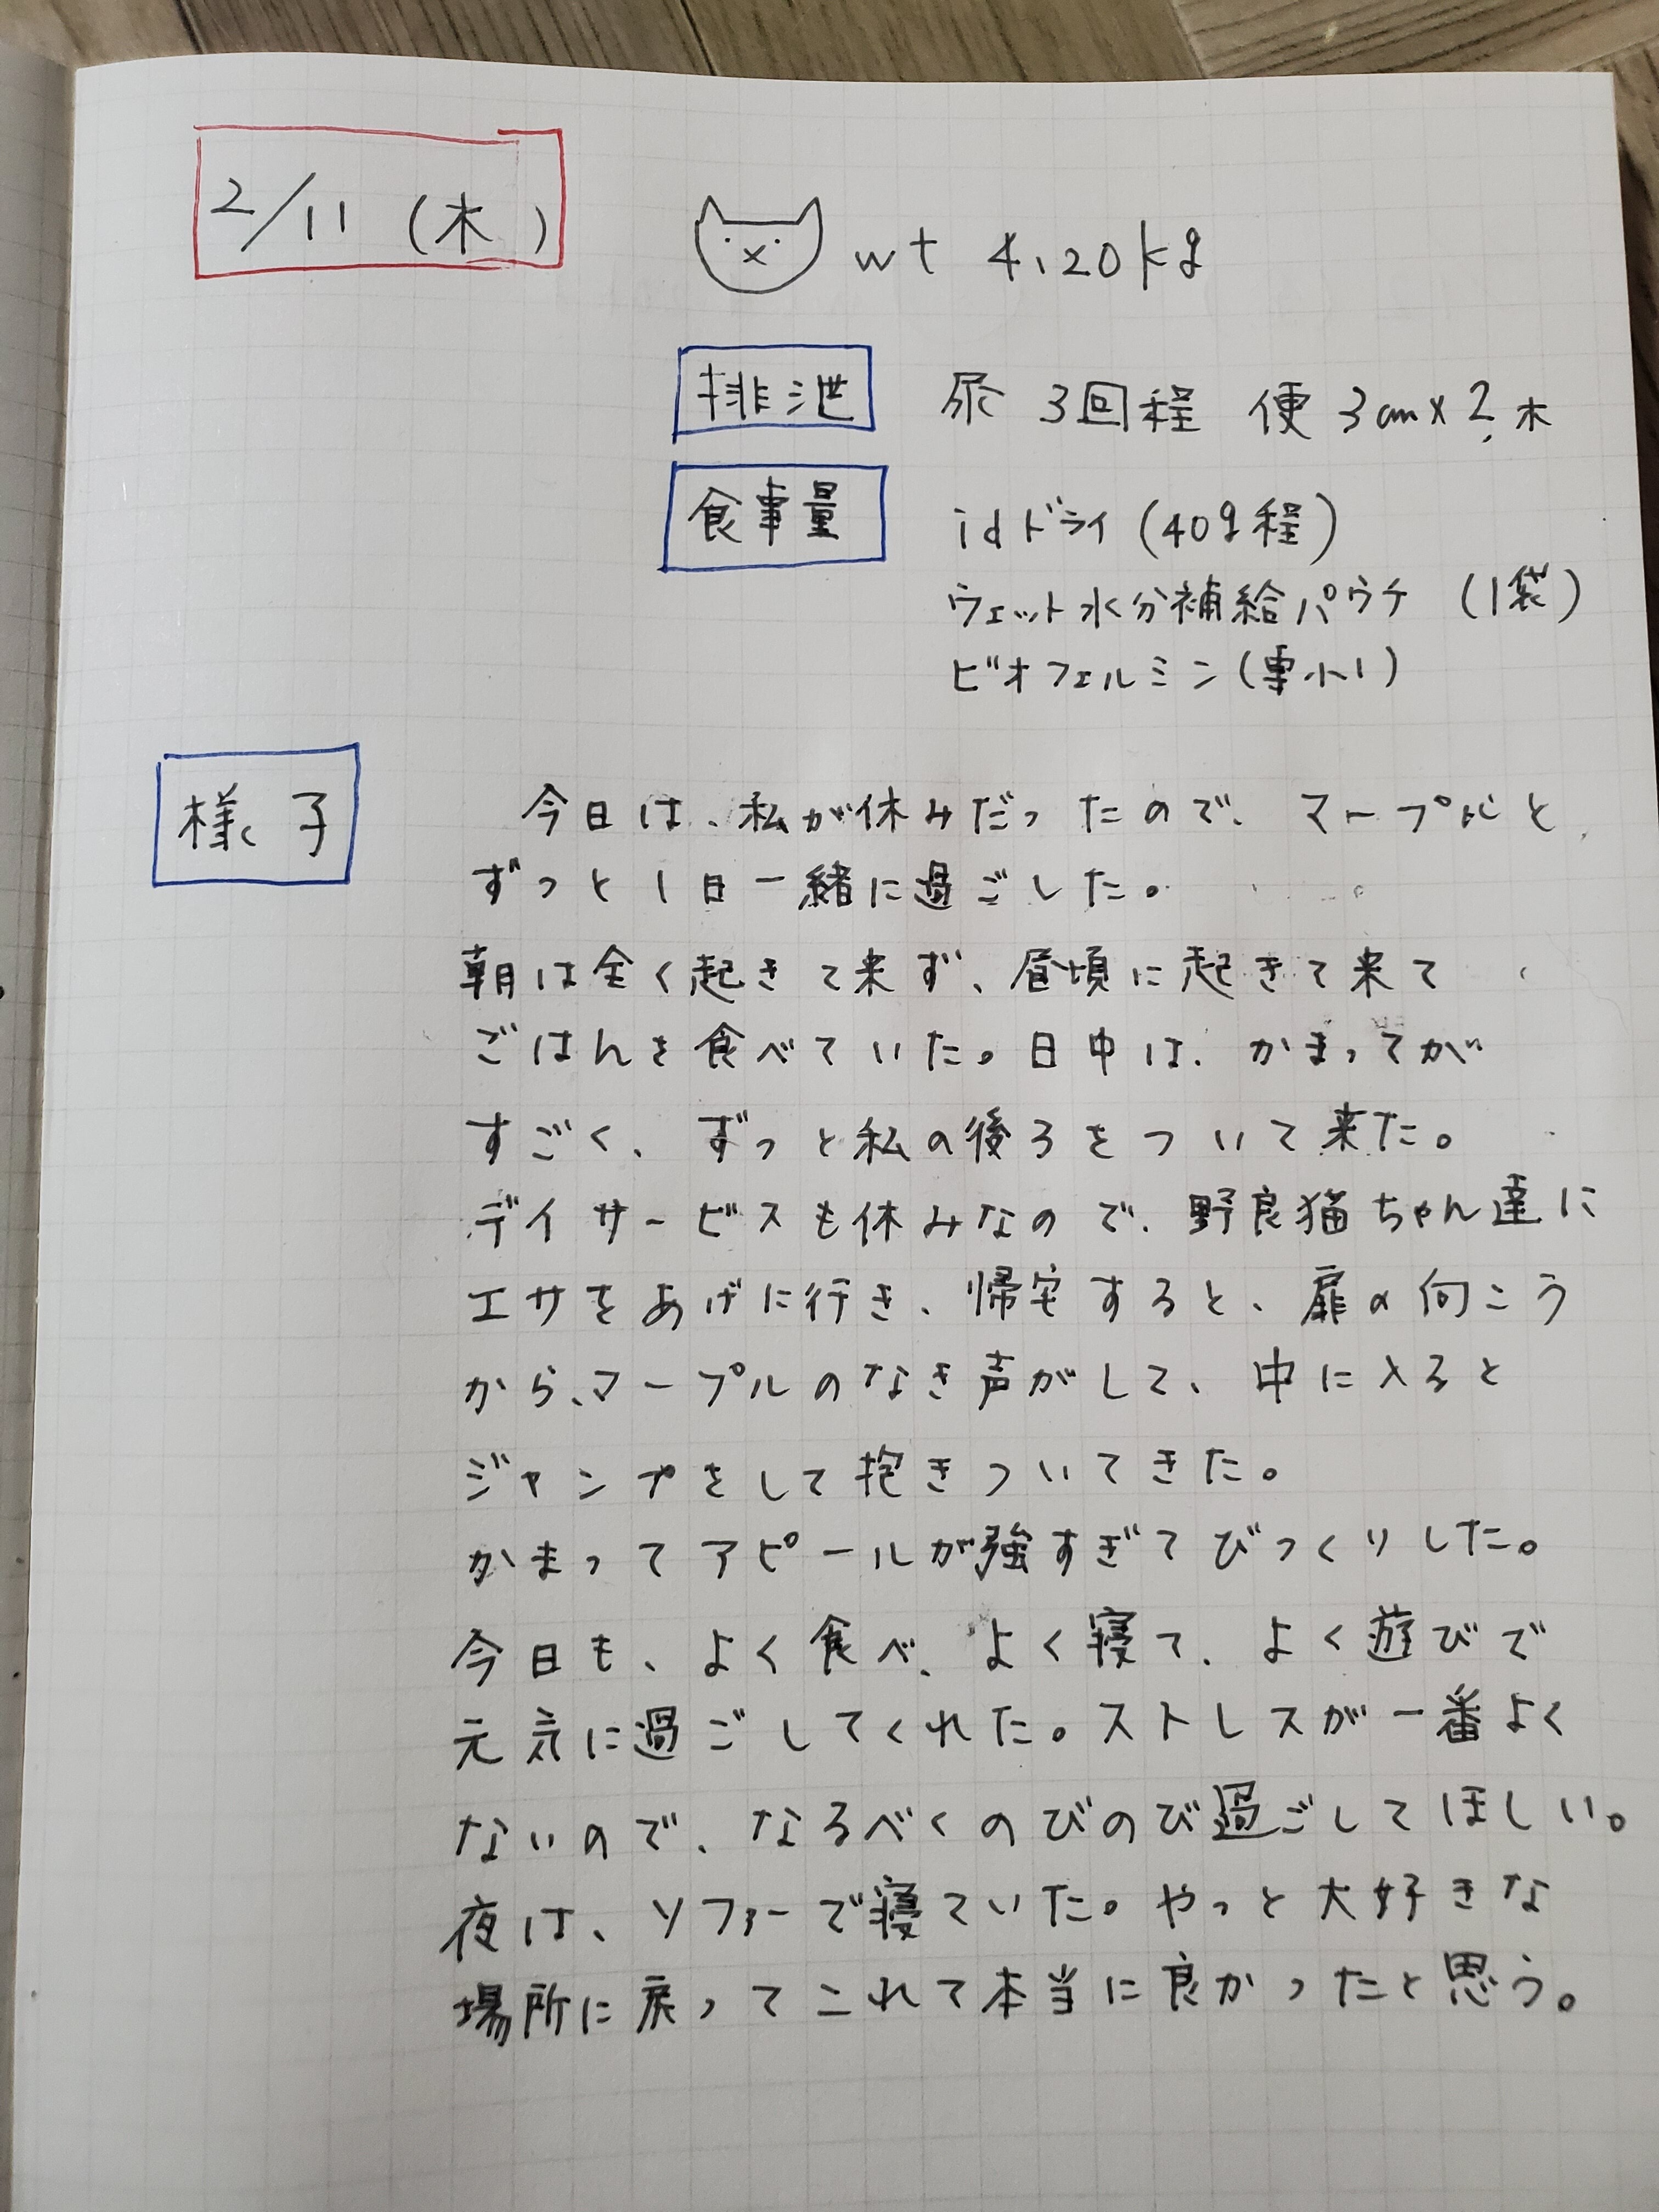 2/11 (木)
wt 4.20kg
排泄 尿 3回程 便 3cm×2本
食事量 idドライ (40g程)
ウェット水分補給パウチ (1袋)
ビオフェルミン (小1)
様子 今日は、私が休みだったので、マープルと
ずっと1日一緒に過ごした。
朝は全く起きて来ず、昼頃に起きて来て
ごはんを食べていた。日中は、かまってが
すごく、ずっと私の後ろをついて来た。
デイサービスも休みなので、野良猫ちゃん達に
エサをあげに行き、帰宅すると、扉の向こう
から、マープルのなき声がして、中に入ると
ジャンプをして抱きついてきた。
かまってアピールが強すぎてびっくりした。
今日も、よく食べ、よく寝て、よく遊びで
元気に過ごしてくれた。ストレスが一番よく
ないので、なるべくのびのび過ごしてほしい。
夜は、ソファーで寝ていた。やっと大好きな
場所に戻ってこれて本当に良かったと思う。